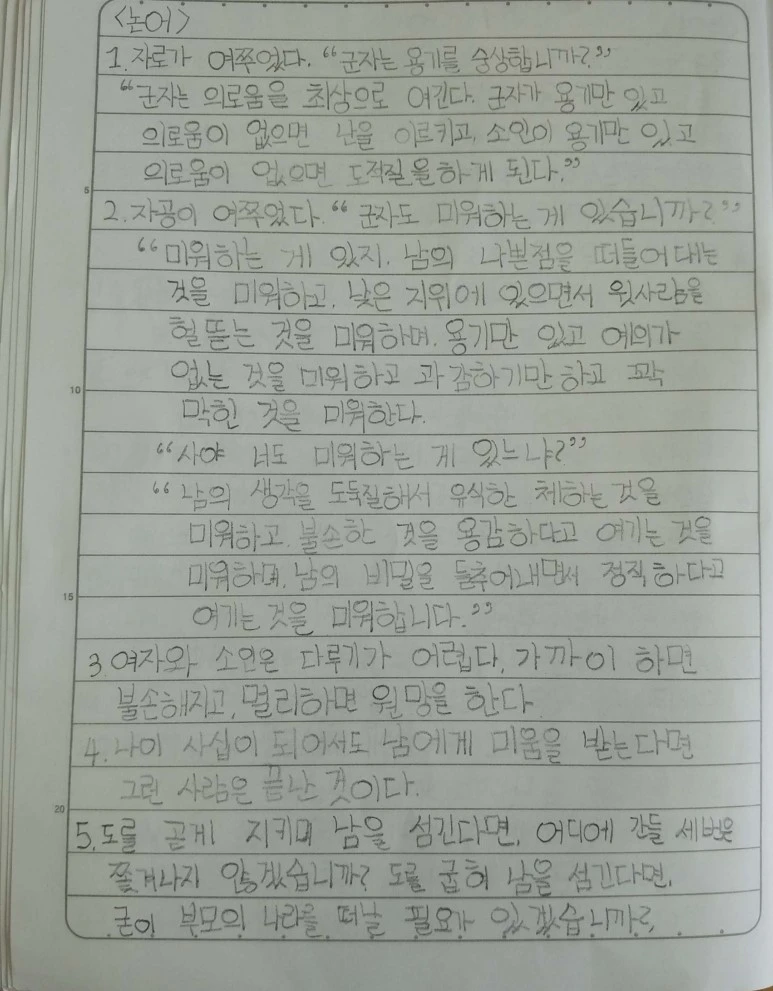 <논어>
1. 자로가 여쭈었다. "군자는 용기를 숭상합니까?"
"군자는 의로움을 최상으로 여긴다. 군자가 용기만 있고
의로움이 없으면 난을 이르키고, 소인이 용기만 있고
의로움이 없으면 도적질을하게 된다."
5
2. 자공이 여쭈었다. "군자도 미워하는 게 있습니까?"
"미워하는 게 있지. 남의 나쁜점을 떠들어대는
것을 미워하고, 낮은 지위에 있으면서 윗사람을
헐뜯는 것을 미워하며, 용기만 있고 예의가
10
없는 것을 미워하고 과감하기만 하고 꼭
막힌 것을 미워한다.
"사야 너도 미워하는 게 있느냐?"
"남의 생각을 도둑질해서 유식한 체하는 것을
미워하고, 불손한 것을 용감하다고 여기는 것을
미워하며, 남의 비밀을 들추어내면서 정직하다고
15
여기는 것을 미워합니다."
3. 여자와 소인은 다루기가 어렵다, 가까이 하면
불손해지고, 멀리하면 원망을 한다
4. 나이 사십이 되어서도 남에게 미움을 받는다면
그런 사람은 끝난 것이다.
20
5. 도를 곧게 지키며 남을 섬긴다면, 어디에 간들 세번은
쫓겨나지 않겠습니까? 도를 굽혀 남을 섬긴다면,
굳이 부모의 나라를 떠날 필요가 있겠습니까?,